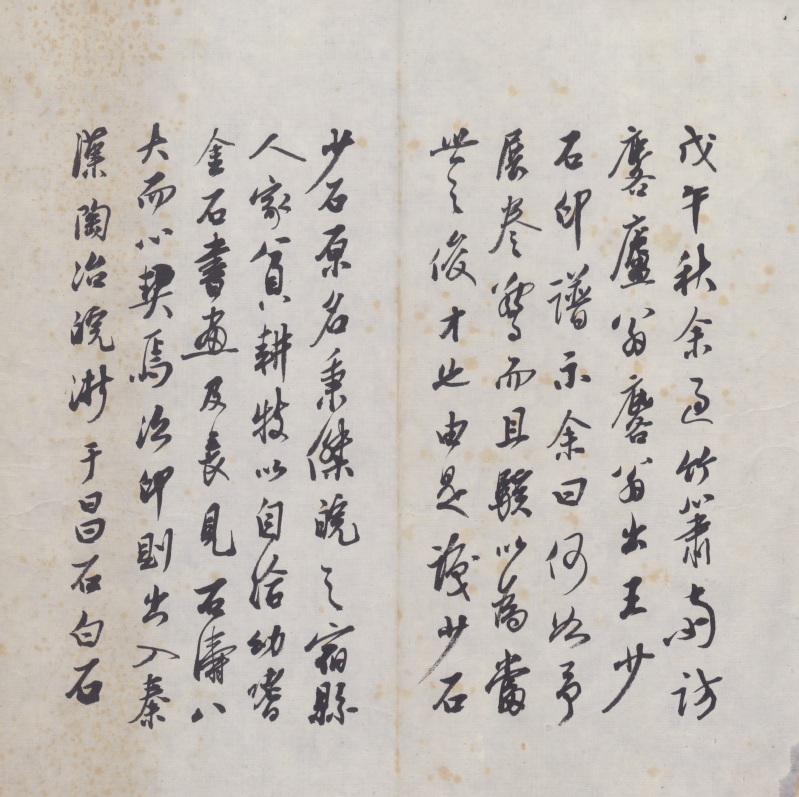 戊午秋余過竹簫齋訪
麐廬翁麐翁出王少
石印譜示余曰何如予
展卷驚而且駭以為當
世之俊才也由是識少石
少石原名秉傑皖之宿縣
人家貧耕牧以自給幼嗜
金石書畫及長見石濤八
大而心契焉治印則出入秦
漢陶冶皖浙于昌石白石